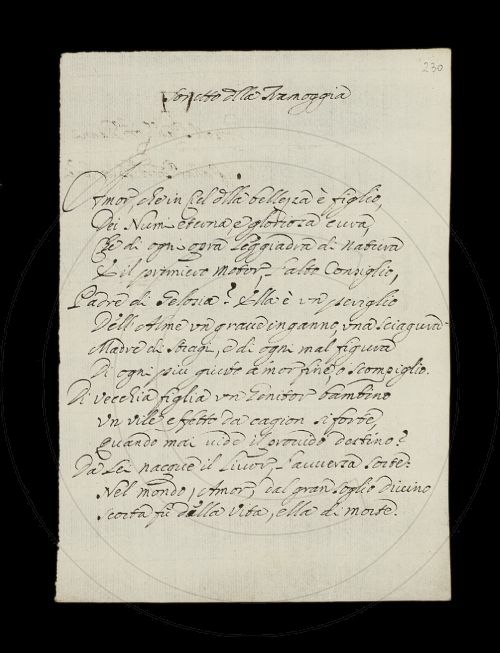 230
Sonetto della Ramoggia
Amor, che in Ciel della bellezza è figlio,
Dei Numi eterna, e gloriosa cura,
Che di ogn' opra leggiadra di natura
È il primiero motor, l'alto Consiglio,
Padre di Gelosia? Ella è un periglio
Dell'Alme un grave inganno, una sciagura
Madre di Stragi, e di ogni mal figura
Di ogni più quieto amor fine, o scompiglio.
Di vecchia figlia un Genitor bambino
Un vile effetto da cagion sì forte,
Quando mai vide il provido destino?
Da Lei nacque il Livor, l'avversa sorte:
Nel mondo, Amor, dal gran soglio Divino
Scorta fù della vita, ella di morte.